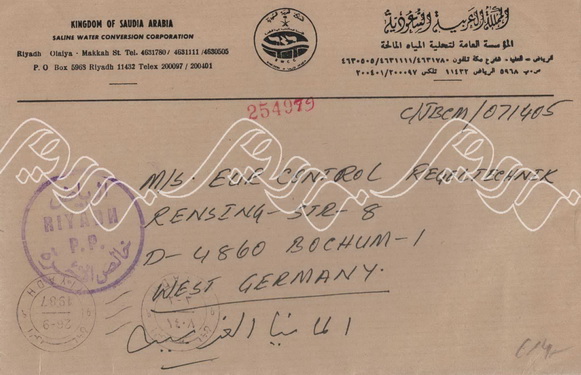 KINGDOM OF SAUDIA ARABIA
SALINE WATER CONVERSION CORPORATION
Riyadh Olaiya - Makkah St. Tel. 4631780/ 4631111 /4630505
P. O Box 5968 Riyadh 11432 Telex 200097 / 200401
المملكة العربية السعودية
المؤسسة العامة لتحلية المياه المالحة
الرياض - العليا - شارع مكة تلفون ٤٦٣١٧٨٠/ ٤٦٣١١١١/ ٤٦٣٠٥٠٥
ص.ب ٥٩٦٨ الرياض ١١٤٣٢ تلكس ٢٠٠٠٩٧/ ٢٠٠٤٠١
C/JBCM/071405
M/S. EUR CONTROL REGELTECHNIK
RENSING-STR-8
D-4860 BOCHUM-1
WEST GERMANY.
المانيا الغربية
الرياض
RIYADH
P.P.
خالص الأجرة
1987
26-9